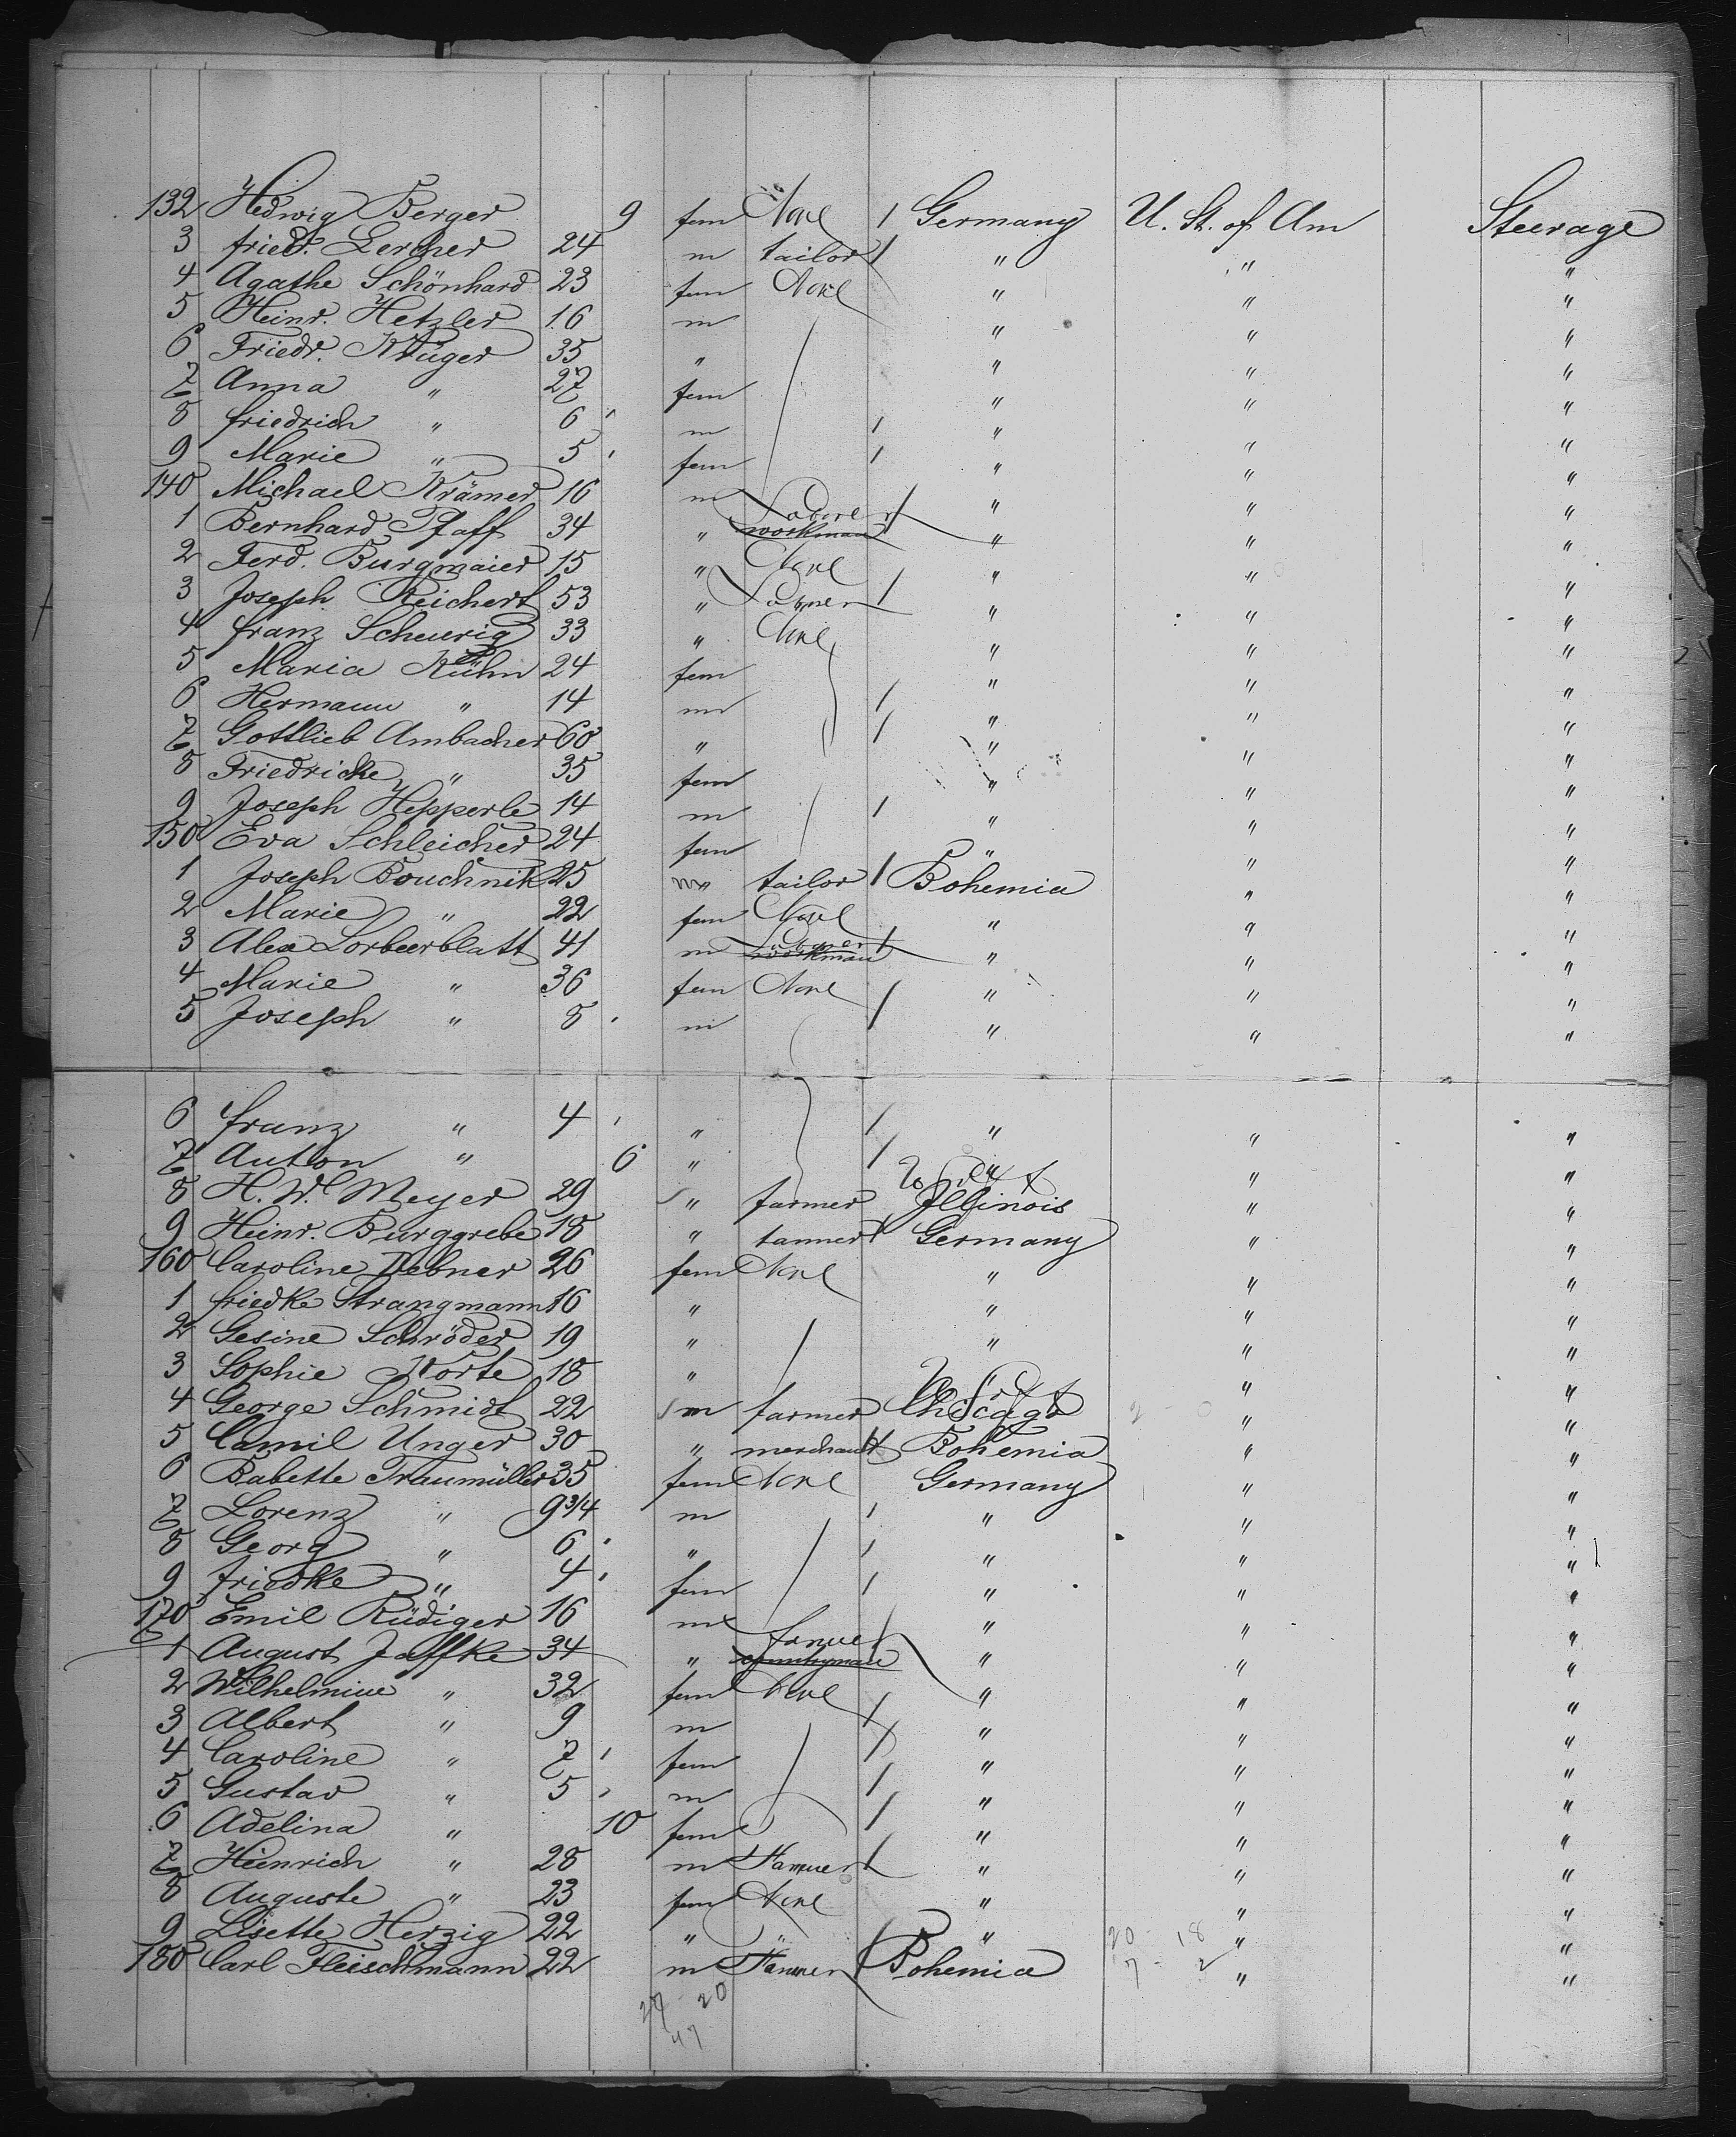 132 Hedwig Berger 9 fem None / Germany U. St. of Am Steerage
3 friedr. Lercher 24 m tailor / " " "
4 Agathe Schönhard 23 fem None " " "
5 Heinr. Hetzler 16 m " " "
6 Friedr. Krüger 35 " " " "
7 Anna " 27 fem " " "
8 friedrich " 6 m / " " "
9 Marie " 5 fem / " " "
140 Michael Krämer 16 m " " "
1 Bernhard Pfaff 34 " Laborer workman / " " "
2 Ferd. Burgmaier 15 " None " " "
3 Joseph Reichert 53 " Laborer / " " "
4 franz Scheurig 33 " None " " "
5 Maria Kühn 24 fem " " "
6 Hermann " 14 m / " " "
7 Gottlieb Ambacher 60 " / " " "
8 Friedricke " 35 fem " " "
9 Joseph Hepperle 14 m / " " "
150 Eva Schleicher 24 fem " " "
1 Joseph Bouchnik 25 m tailor / Bohemia " "
2 Marie " 22 fem None " " "
3 Alex Lorbeerblatt 41 m Laborer workman / " " "
4 Marie " 36 fem None " " "
5 Joseph " 8 m / " " "
6 franz " 4 " / " " "
7 Anton " 6 " / " " "
8 H. W. Meyer 29 " farmer Illinois " "
9 Heinr. Burggrebe 18 " tanner / Germany " "
160 Caroline Debner 26 fem None " " "
1 friedke Strangmann 16 " " " "
2 Gesine Schröder 19 " " " "
3 Sophie Korte 18 " " "
4 George Schmidt 22 m farmer Chicago " "
5 Camil Unger 30 " merchant / Bohemia " "
6 Babette Traumüller 35 fem None Germany " "
7 Lorenz " 9 3/4 m / " " "
8 Georg " 6 " / " " "
9 friedke " 4 fem / " " "
170 Emil Rüdiger 16 m " " "
1 August Jaffke 34 " farmer countryman " " "
2 Wilhelmine " 32 fem None " " "
3 Albert " 9 m / " " "
4 Caroline " 7 fem / " " "
5 Gustav " 5 m / " " "
6 Adelina " 10 fem / " " "
7 Heinrich " 28 m Farmer / " " "
8 Auguste " 23 fem None " " "
9 Lisette Herzig 22 " " " 20 18 " "
180 Carl Fleischmann 22 m Farmer / Bohemia 7 - 2 " "
27 20
47